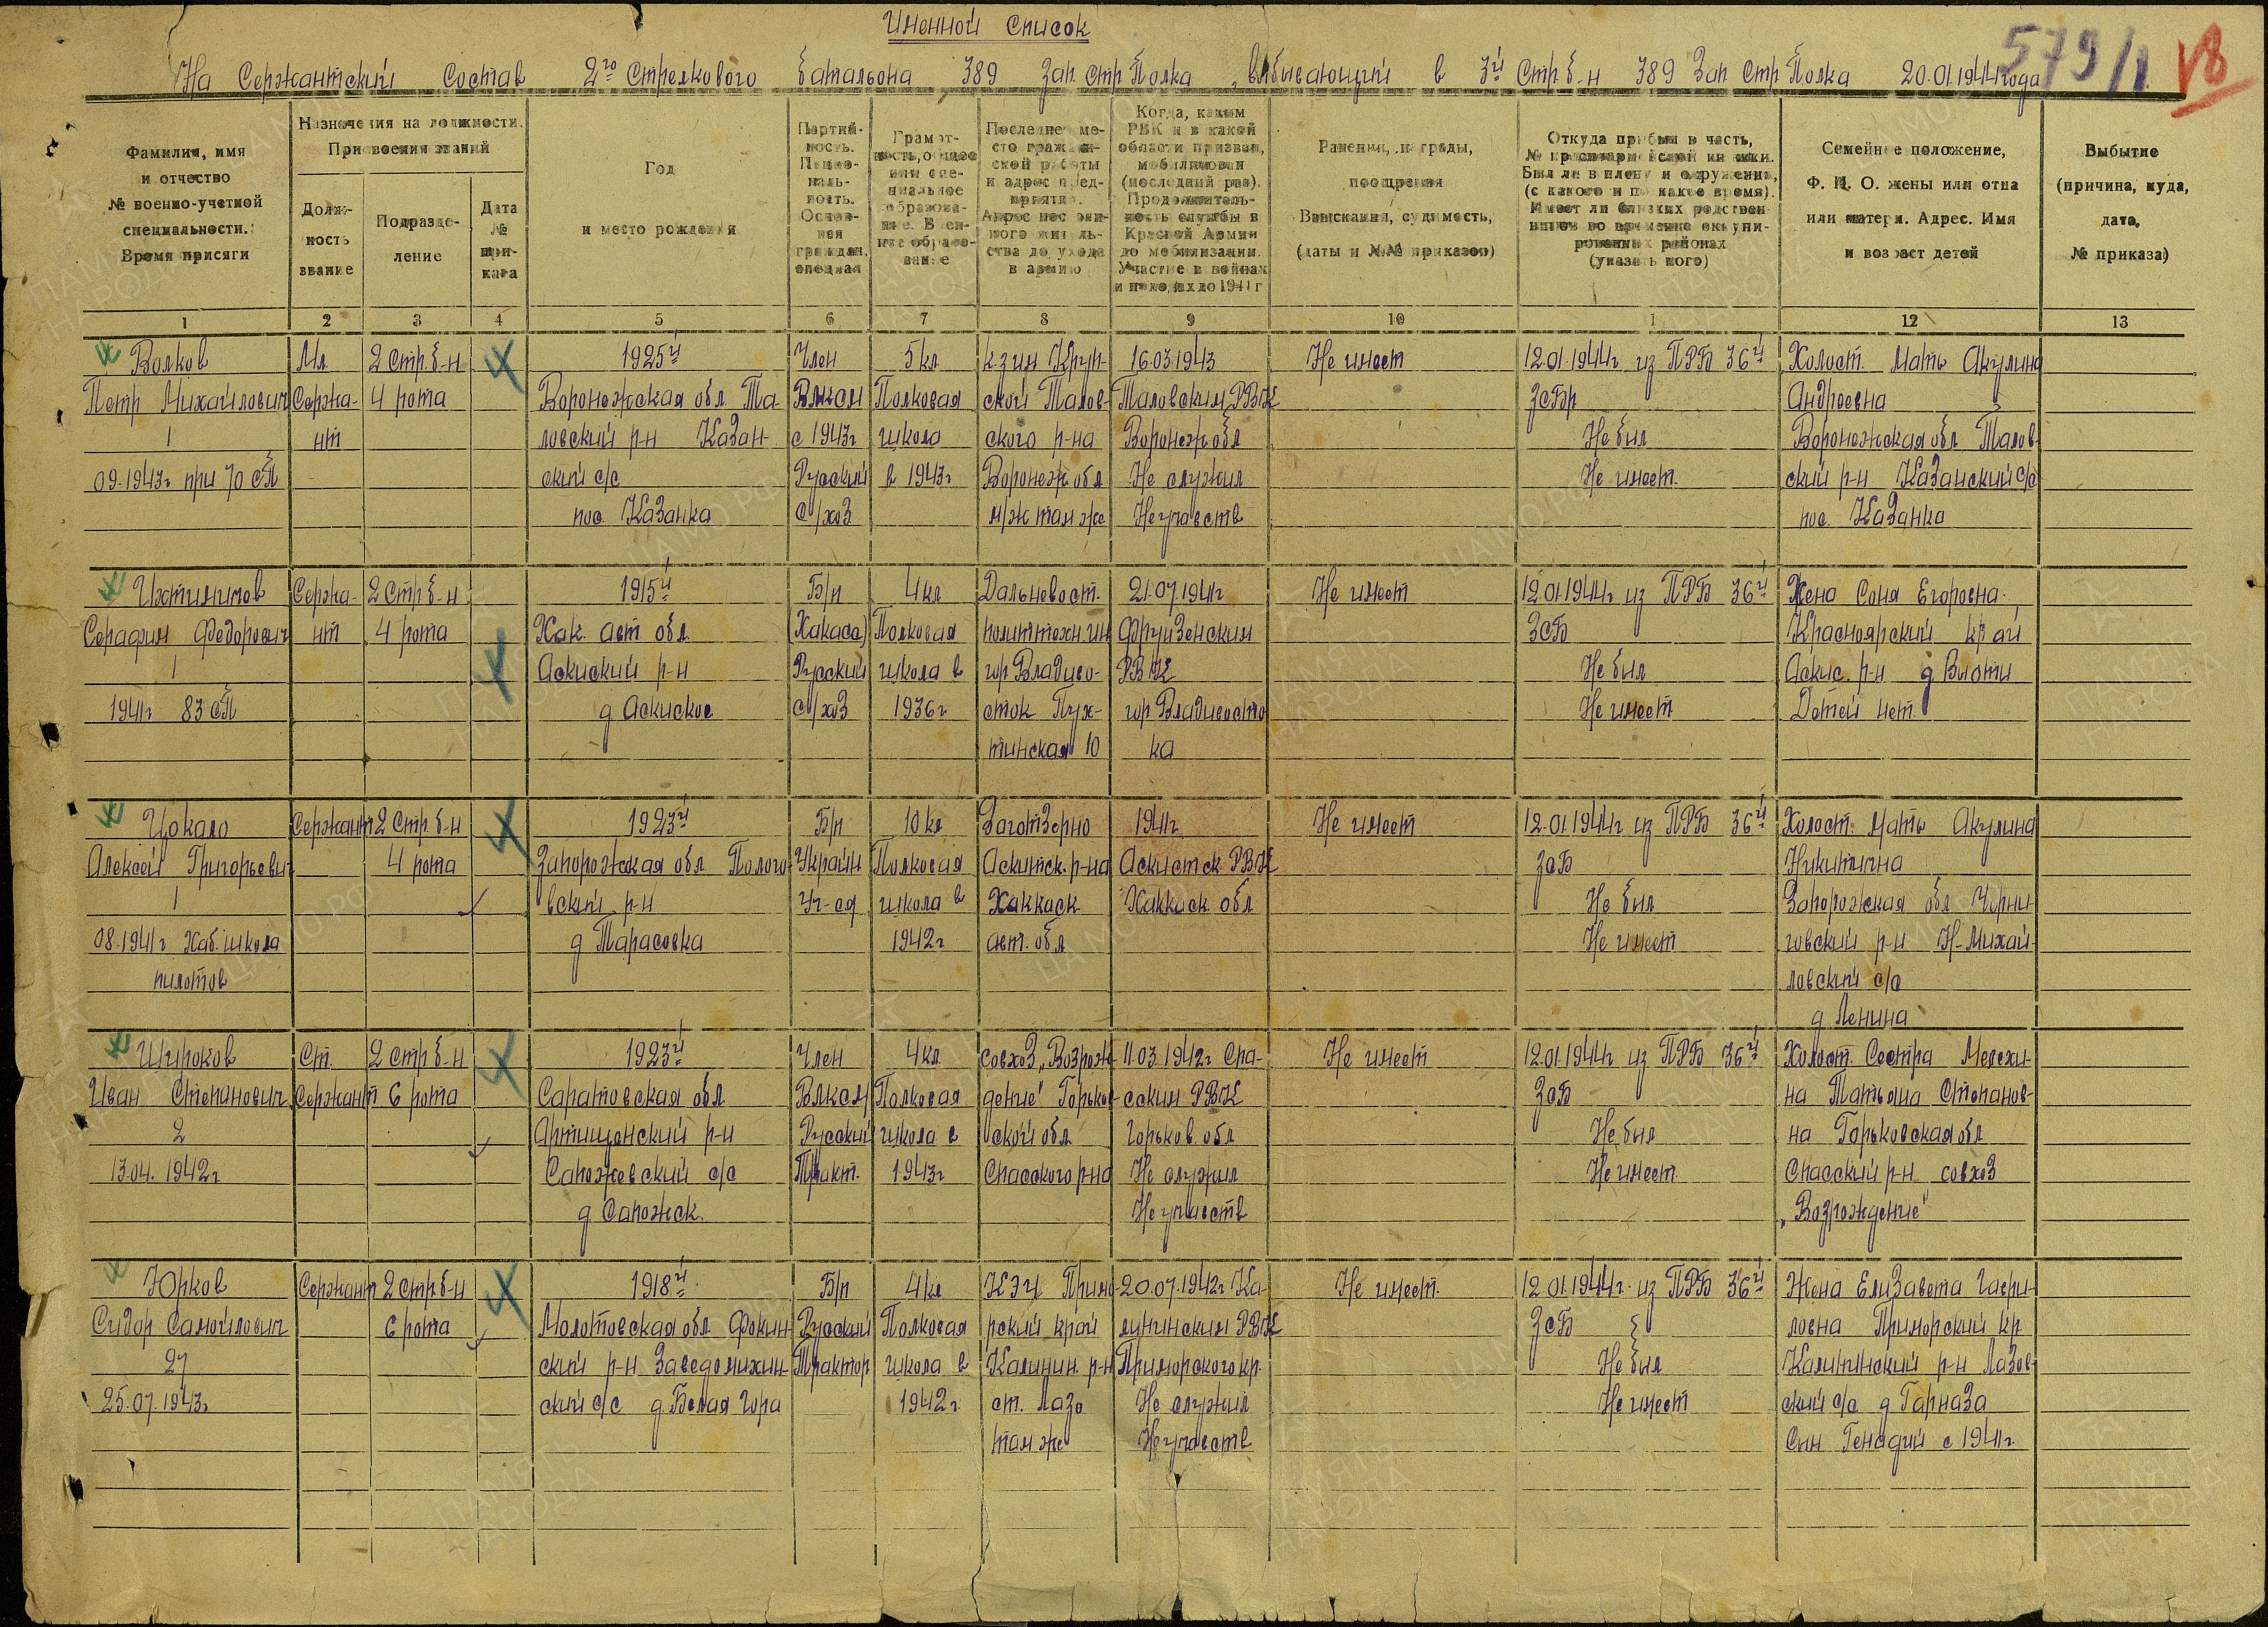 Именной список
На Сержантский состав 2го Стрелкового батальона 389 зап стр Полка, выбывающий в 3й Стр б-н 389 Зап Стр Полка 20.01.1944 года
579/1 V8
Фамилия, имя и отчество № военно-учетной специальности. Время присяги
Назначения на должности. Присвоения званий
Должность звание
Подразделение
Дата № приказа
Год и место рождения
Партийность. Национальность. Основная граждан. специал
Грамотность, общее или специальное образование. Военное образование
Последнее место гражданской работы и адрес предприятия. Адрес постоянного жительства до ухода в армию
Когда, каким РВК и в какой области призван, мобилизован (последний раз). Продолжительность службы в Красной Армии до мобилизации. Участие в войнах и походах до 1941 г
Ранения, награды, поощрения Взыскания, судимость, (даты и №№ приказов)
Откуда прибыл в часть, № красноармейской книжки. Был ли в плену и окружении, (с какого и по какое время). Имеет ли близких родственников во временно оккупированных районах (указать кого)
Семейное положение, Ф. И. О. жены или отца или матери. Адрес. Имя и возраст детей
Выбытие (причина, куда, дата, № приказа)
1 2 3 4 5 6 7 8 9 10 1 12 13
Волков Мл 2 стр б-н 1925й Член 5 кл к-з им Круп- 16.03.1943 Не имеет 12.01.1944г из ПРБ 36й Холост. Мать Акулина
Петр Михайлович Сержа- 4 рота Воронежская обл Та- Влксм Полковая ской Талов- Таловским РВК ЗСБр Андреевна
1 нт ловский р-н Казан- с 1943г школа ского р-на Воронеж обл Не был Воронежская обл Талов-
09.1943г при 70 сП ский с/с Русский в 1943г Воронеж обл Не служил Не имеет. ский р-н Казанский с/с
пос. Казанка С/хоз м/ж там же Не участв пос. Казанка
Сержа- 2 Стр б-н 1915й Б/п 4 кл Дальневост. 21.07.1941г Не имеет 12.01.1944г из ПРБ 36й Жена Соня Егоровна.
Серафим Федорович нт 4 рота Хак. авт обл. (Хакасс) Полковая политтехн им Фрунзенским ЗсБ Красноярский край
1 Аскиский р-н Русский школа в гор Владиво- РВК Не был Аскис. р-н
1941г 83 сП д Аскиское С/хоз 1936г сток гор Владивосто Не имеет Детей нет.
тинская 10 ка
Цокало Сержант 2 Стр. б-н 1923й Б/п 10 кл Заготзерно 1941г Не имеет 12.01.1944г из ПРБ 36й Холост. Мать Акулина
Алексей Григорьевич 4 рота Запорожская обл Полого- Украин Полковая Аскитск. р-на Аскистск. РВК ЗсБ Никитична
1 вский р-н Уч-ся школа в Хаккаск Хаккаск обл Не был Запорожская обл Черни-
08.1941г Хаб. школа д Тарасовка 1942г авт. обл Не имеет говский р-н Н-Михай-
пилотов ловский с/с
д Ленина
Широков Ст. 2 стр б-н 1923й Член 4 кл совхоз „Возрож- 11.03.1942г Спа- Не имеет 12.01.1944г из ПРБ 36й Холост. Сестра Мелехи-
Иван Степанович Сержант 6 рота Саратовская обл Влксм Полковая дение" Горьков- сским РВК ЗсБ на Татьяна Степанов-
2 Артищенский р-н Русский школа в ской обл. Горьков. обл Не был на Горьковская обл
13.04.1942г Сапожевский с/с Тракт. 1943г Спасского р-на Не служил Не имеет. Спасский р-н совхоз
д Сапожск. Не участв „Возрождение"
Юрков Сержант 2 стр б-н 1918й Б/п 4 кл КЭЧ Примо- 20.07.1942г Ка- Не имеет. 12.01.1944г. из ПРБ 36й Жена Елизавета Гаври-
Сидор Самойлович 6 рота Молотовская обл Фокин- Русский Полковая рский край лининским РВК ЗсБ ловна Приморский кр
27 ский р-н Заведомихин- Трактор школа в Калинин. р-н Приморского кр. Не был Калининский р-н Лазов-
25.07.1943г ский с/с д Белая Гора 1942г. ст. Лазо Не служил Не имеет ский с/с д Гарназа
там же Не участв Сын Генадий с 1941г.